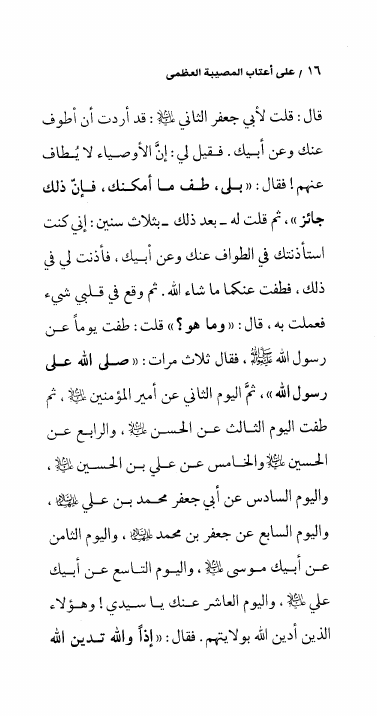 ١٦ / على أعتاب المصيبة العظمى
قال: قلت لأبي جعفر الثاني ﵇: قد أردت أن أطوف
عنك وعن أبيك. فـقيل لي: إنَّ الأوصياء لا يُـطاف
عنهم! فقال: «بـلى، طـف مـا أمكـنك، فـإنّ ذلك
جائز»، ثم قلت له ـ بعد ذلك ـ بثلاث سنين: إني كنت
استأذنتك في الطواف عنك وعن أبيـك، فأذنت لي في
ذلك، فطفت عنكما ما شاء الله. ثم وقع في قلبي شيء
فعملت به، قال: «وما هو؟» قلت: طفت يوماً عـن
رسول الله ﷺ، فقال ثلاث مرات: «صـلى الله عـلى
رسول الله»، ثمَّ اليوم الثاني عن أمير المؤمنين ﵇، ثم
طفت اليوم الثـالث عـن الحسـن ﵇، والرابع عـن
الحسين ﵇ والخـامس عـن عـلي بـن الحسـين ﵇،
واليوم السادس عن أبي جعفر محـمد بـن عـلي ﵇،
واليوم السابع عن جعفر بن محمد ﵇، واليوم الثامن
عـن أبـيك مـوسى ﵇، واليـوم التـاسع عـن أبـيك
علي ﵇، واليوم العاشر عـنك يـا سـيدي! وهـؤلاء
الذين أدين الله بولايتهم. فقال: «إذاً والله تـدين الله